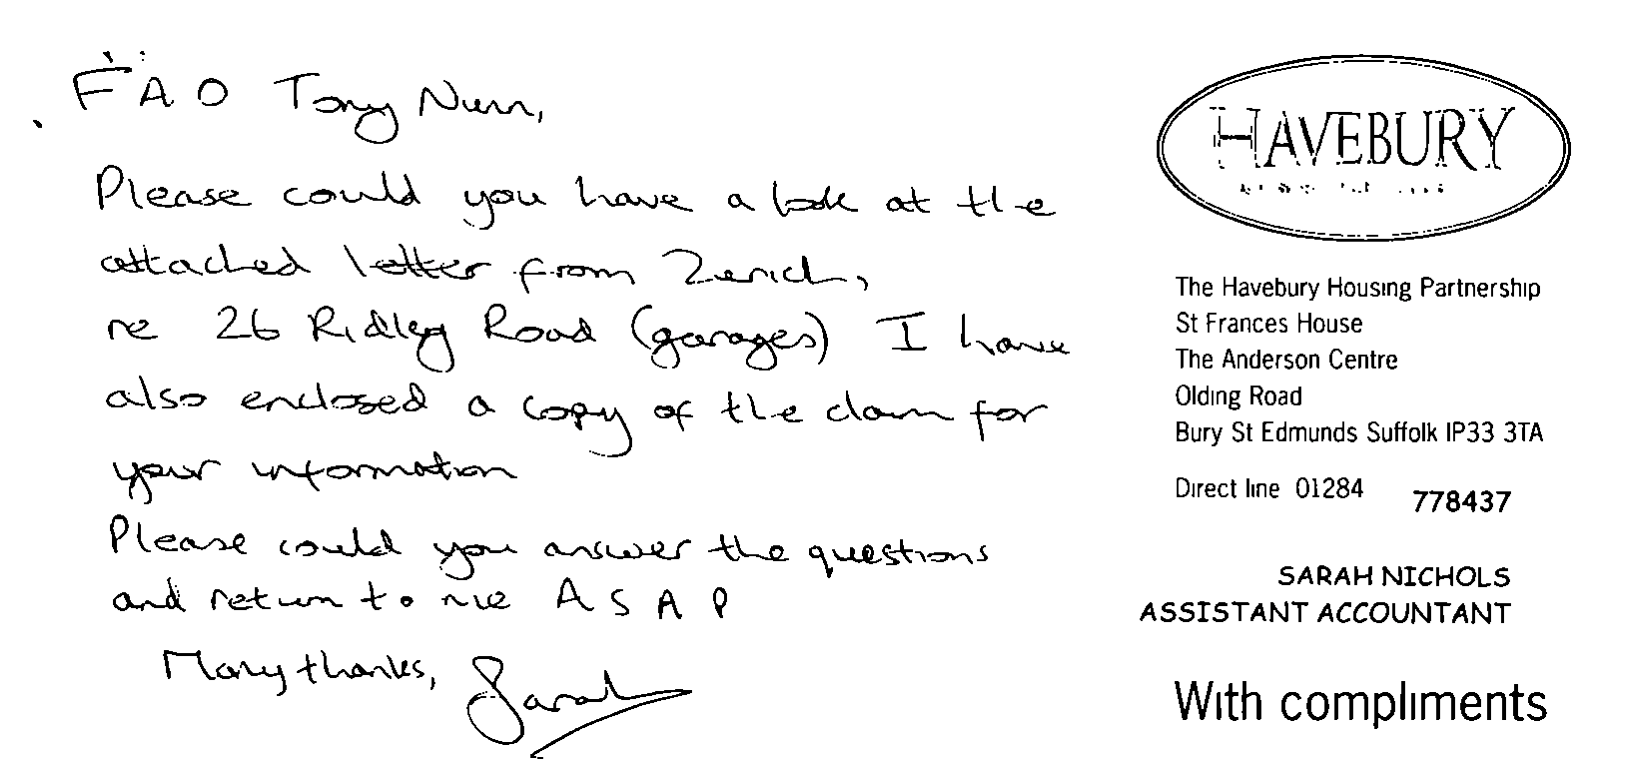 FAO Tony Nunn,
Please could you have a look at the
attached letter from Zurich,
re 26 Ridley Road (garages) I have
also enclosed a copy of the claim for
your information
Please could you answer the questions
and return to me ASAP
Many thanks, Sarah
HAVEBURY
The Havebury Housing Partnership
St Frances House
The Anderson Centre
Olding Road
Bury St Edmunds Suffolk IP33 3TA
Direct line 01284 778437
SARAH NICHOLS
ASSISTANT ACCOUNTANT
With compliments